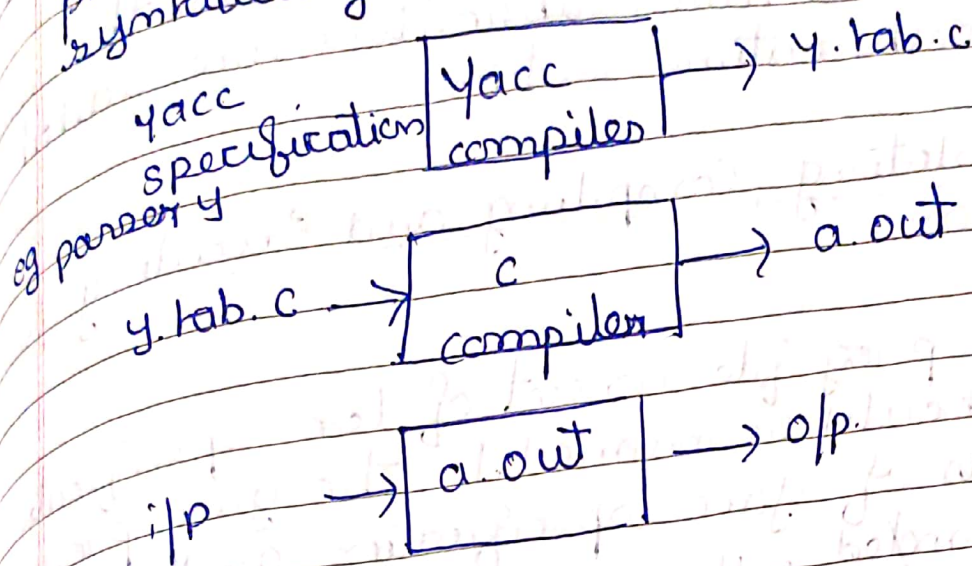 yacc
specification
eg parser y
Yacc
compiler
y.tab.c
y.tab.c
c
compiler
a.out
i/p
a.out
o/p.